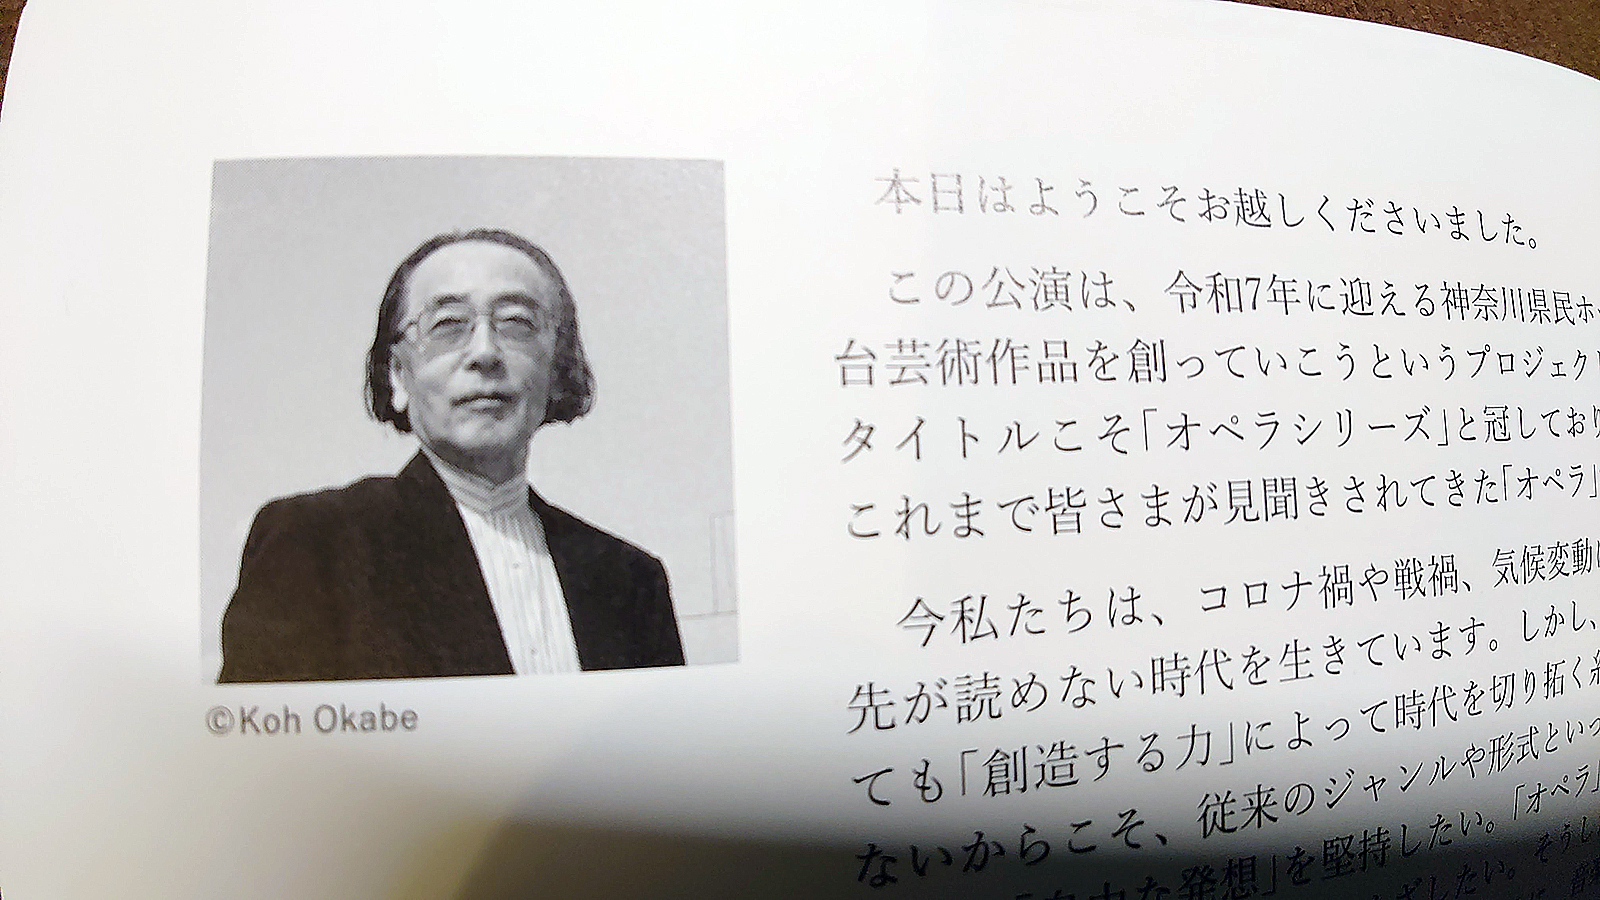 本日はようこそお越しくださいました。
この公演は、令和7年に迎える神奈川県民ホ
台芸術作品を創っていこうというプロジェク
タイトルこそ「オペラシリーズ」と冠しており
これまで皆さまが見聞きされてきた「オペラ」
今私たちは、コロナ禍や戦禍、気候変動
先が読めない時代を生きています。しかし、
ても「創造する力」によって時代を切り拓く
ないからこそ、従来のジャンルや形式といっ
な発想」を堅持したい。「オペラ」
ざしたい。そうし
©Koh Okabe